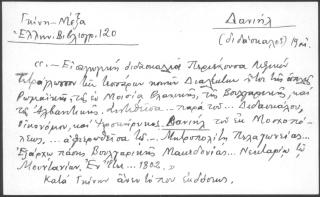 Γκίνη-Μέξα
Ἑλλην. Βιβλιογρ. 120
Δανιήλ
(διδάσκαλος) 19ος αἰ.
«.- Εἰσαγωγική διδασκαλία Περιέχουσα Λεξικόν
Τετράγλωσσον τῶν τεσσάρων κοινῶν Διαλέκτων ἤτοι τῆς ἁπλῆς
Ρωμαϊκῆς, τῆς ἐν Μοισίᾳ Βλαχικῆς, τῆς Βουλγαρικῆς, καί
τῆς Ἀλβανιτικῆς. Συντεθεῖσα... παρά τοῦ... Διδασκάλου,
Οἰκονόμου, καί Ἱεροκήρυκος Δανιήλ τοῦ ἐκ Μοσχοπό-
λεως, ... ἀφιερωθεῖσα τῷ... Μητροπολίτῃ Πελαγωνείας...
Ἐξάρχῳ πάσης Βουλγαρικῆς Μακεδονίας... Νεκταρίῳ τῷ
Μουντανίων. Ἐν Ἔτει... 1802.»
Κατά Γκίνην ἄνευ τόπου ἐκδόσεως.